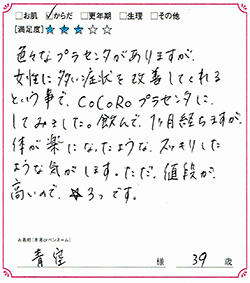 □お肌 ☑からだ □更年期 □生理 □その他
[満足度]★★★☆☆
色々なプラセンタがありますが、
女性に多い症状を改善してくれる
という事で、COCOROプラセンタに
してみました。飲んで、1ヶ月経ちますが、
体が楽になったような、スッキリした
ような気がします。ただ、値段が
高いので、★3つです。
お名前[本名orペンネーム]
青空 様 39歳